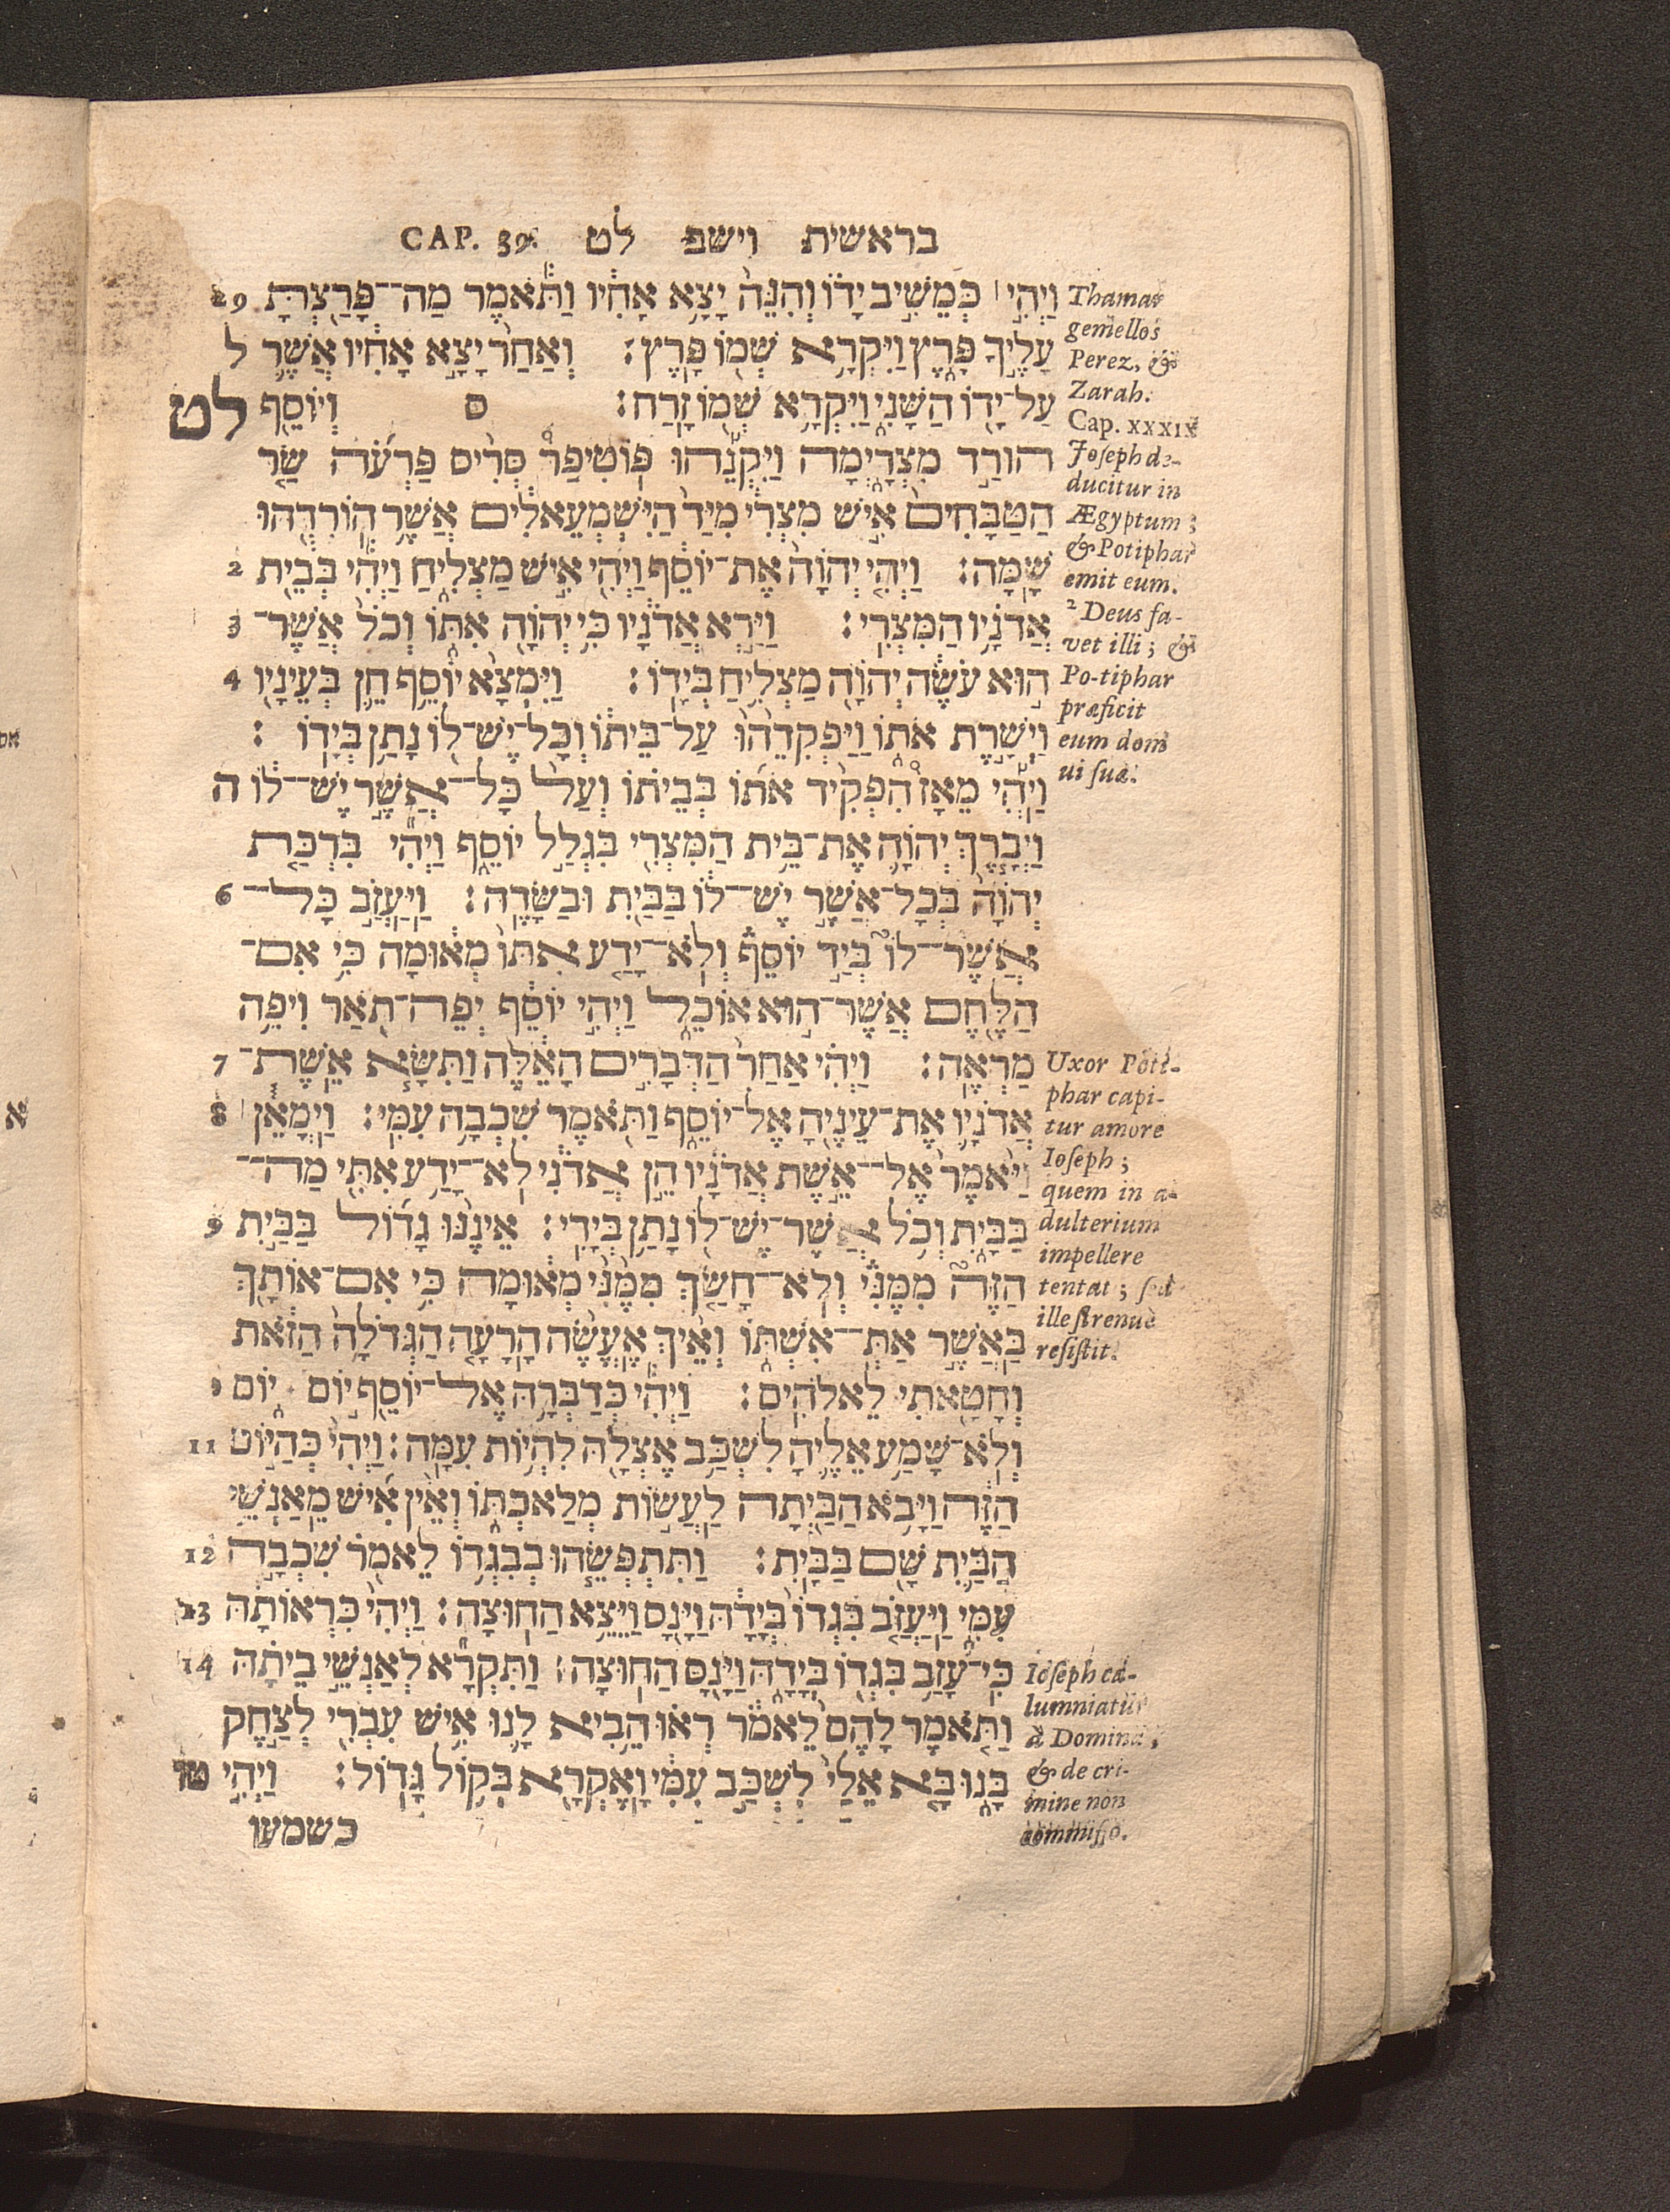 בראשית וישב לט CAP. 39.
וַיְהִ֣י ׀ כְּמֵשִׁ֣יב יָד֗וֹ וְהִנֵּה֙ יָצָ֣א אָחִ֔יו וַתֹּ֕אמֶר מַה־־פָּרַ֖צְתָּ 29
עָלֶ֣יךָ פָּ֑רֶץ וַיִּקְרָ֥א שְׁמ֖וֹ פָּֽרֶץ׃ וְאַחַר֙ יָצָ֣א אָחִ֔יו אֲשֶׁ֥ר ל
עַל־יָד֖וֹ הַשָּׁנִ֑י וַיִּקְרָ֥א שְׁמ֖וֹ זָֽרַח׃ ס וְיוֹסֵ֖ף לט
הוּרַ֣ד מִצְרָ֑יְמָה וַיִּקְנֵ֡הוּ פּֽוֹטִיפַר֩ סְרִ֨יס פַּרְעֹ֜ה שַׂ֤ר
הַטַּבָּחִים֙ אִ֣ישׁ מִצְרִ֔י מִיַּד֙ הַיִּשְׁמְעֵאלִ֔ים אֲשֶׁ֥ר הֽוֹרִדֻ֖הוּ
שָֽׁמָּה׃ וַיְהִ֤י יְהוָֹה֙ אֶת־יוֹסֵ֔ף וַיְהִ֖י אִ֣ישׁ מַצְלִ֑יחַ וַיְהִ֕י בְּבֵ֖ית 2
אֲדֹנָ֥יו הַמִּצְרִֽי׃ וַיַּ֣רְא אֲדֹנָ֔יו כִּ֥י יְהוָֹ֖ה אִתּ֑וֹ וְכֹל֙ אֲשֶׁר־ 3
ה֣וּא עֹשֶׂ֔ה יְהוָֹ֖ה מַצְלִ֥יחַ בְּיָדֽוֹ׃ וַיִּמְצָ֨א יוֹסֵ֥ף חֵ֛ן בְּעֵינָ֖יו 4
וַיְשָׁ֣רֶת אֹת֑וֹ וַיַּפְקִדֵ֙הוּ֙ עַל־בֵּית֔וֹ וְכָל־יֶשׁ־ל֖וֹ נָתַ֥ן בְּיָדֽוֹ׃
וַיְהִ֡י מֵאָז֩ הִפְקִ֨יד אֹת֜וֹ בְּבֵית֗וֹ וְעַל֙ כָּל־־אֲשֶׁ֣ר יֶשׁ־־ל֔וֹ ה
וַיְבָ֧רֶךְ יְהוָֹ֛ה אֶת־בֵּ֥ית הַמִּצְרִ֖י בִּגְלַ֣ל יוֹסֵ֑ף וַיְהִ֞י בִּרְכַּ֤ת
יְהוָֹה֙ בְּכָל־אֲשֶׁ֣ר יֶשׁ־־ל֔וֹ בַּבַּ֖יִת וּבַשָּׂדֶֽה׃ וַיַּעֲזֹ֣ב כָּל־־ 6
אֲשֶׁר־־לוֹ֮ בְּיַ֣ד יוֹסֵף֒ וְלֹא־־יָדַ֤ע אִתּוֹ֙ מְא֔וּמָה כִּ֥י אִם־
הַלֶּ֖חֶם אֲשֶׁר־ה֣וּא אוֹכֵ֑ל וַיְהִ֣י יוֹסֵ֔ף יְפֵה־תֹ֖אַר וִיפֵ֥ה
מַרְאֶֽה׃ וַיְהִ֗י אַחַר֙ הַדְּבָרִ֣ים הָאֵ֔לֶּה וַתִּשָּׂ֧א אֵֽשֶׁת־ 7
אֲדֹנָ֛יו אֶת־עֵינֶ֖יהָ אֶל־יוֹסֵ֑ף וַתֹּ֖אמֶר שִׁכְבָ֥ה עִמִּֽי׃ וַיְמָאֵ֓ן ׀ 8
וַיֹּ֙אמֶר֙ אֶל־־אֵ֣שֶׁת אֲדֹנָ֔יו הֵ֣ן אֲדֹנִ֔י לֹא־־יָדַ֥ע אִתִּ֖י מַה־־
בַּבָּ֑יִת וְכֹ֥ל אֲשֶׁר־יֶשׁ־ל֖וֹ נָתַ֥ן בְּיָדִֽי׃ אֵינֶ֨נּוּ גָד֜וֹל בַּבַּ֣יִת 9
הַזֶּה֮ מִמֶּנִּי֒ וְלֹא־־חָשַׂ֤ךְ מִמֶּ֙נִּי֙ מְא֔וּמָה כִּ֥י אִם־אוֹתָ֖ךְ
בַּאֲשֶׁ֣ר אַתְּ־־אִשְׁתּ֑וֹ וְאֵ֨יךְ אֶעֱשֶׂ֜ה הָרָעָ֤ה הַגְּדֹלָה֙ הַזֹּ֔את
וְחָטָ֖אתִי לֵאלֹהִֽים׃ וַיְהִ֕י כְּדַבְּרָ֥הּ אֶל־יוֹסֵ֖ף י֣וֹם י֑וֹם
וְלֹא־שָׁמַ֥ע אֵלֶ֛יהָ לִשְׁכַּ֥ב אֶצְלָ֖הּ לִהְי֥וֹת עִמָּֽהּ׃ וַיְהִי֙ כְּהַיּ֣וֹם 11
הַזֶּ֔ה וַיָּבֹ֥א הַבַּ֖יְתָה לַעֲשׂ֣וֹת מְלַאכְתּ֑וֹ וְאֵ֨ין אִ֜ישׁ מֵאַנְשֵׁ֥י
הַבַּ֛יִת שָׁ֖ם בַּבָּֽיִת׃ וַתִּתְפְּשֵׂ֧הוּ בְּבִגְד֛וֹ לֵאמֹ֖ר שִׁכְבָ֣ה 12
עִמִּ֑י וַיַּעֲזֹ֤ב בִּגְדוֹ֙ בְּיָדָ֔הּ וַיָּ֖נָס וַיֵּצֵ֥א הַחֽוּצָה׃ וַיְהִי֙ כִּרְאוֹתָ֔הּ 13
כִּֽי־עָזַ֥ב בִּגְד֖וֹ בְּיָדָ֑הּ וַיָּ֖נָס הַחֽוּצָה׃ וַתִּקְרָ֞א לְאַנְשֵׁ֣י בֵיתָ֗הּ 14
וַתֹּ֤אמֶר לָהֶם֙ לֵאמֹ֔ר רְא֗וּ הֵ֥בִיא לָ֛נוּ אִ֥ישׁ עִבְרִ֖י לְצַ֣חֶק
בָּ֑נוּ בָּ֤א אֵלַי֙ לִשְׁכַּ֣ב עִמִּ֔י וָאֶקְרָ֖א בְּק֥וֹל גָּדֽוֹל׃ וַיְהִ֣י טו
כשמעו
Thamar
gemellos
Perez, &
Zarah.
Cap. XXXIX
Joseph de-
ducitur in
Ægyptum;
& Potiphar
emit eum.
2 Deus fa-
vet illi; &
Po-tiphar
præficit
eum dom
ui suæ.
Uxor Poti-
phar capi-
tur amore
Ioseph;
quem in a-
dulterium
impellere
tentat; sed
ille strenuè
resistit.
Ioseph ca-
lumniatur
à Domina;
& de cri-
mine non
commisso.